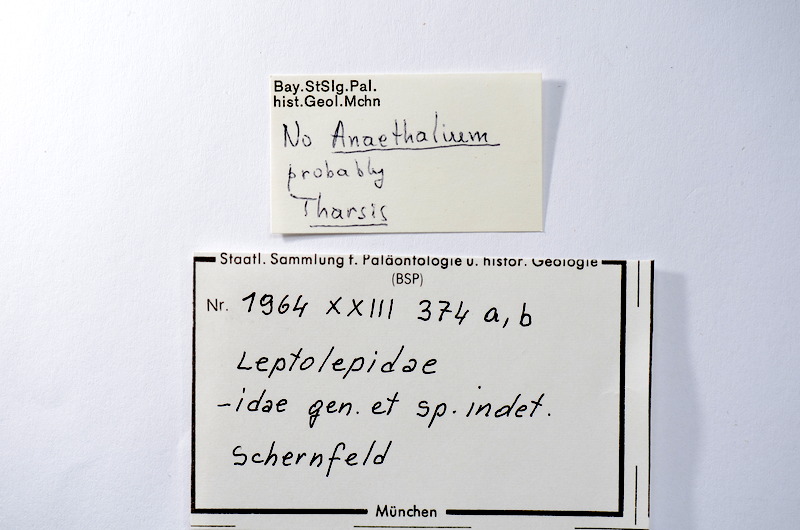 Bay.StSlg.Pal.
hist.Geol.Mchn
No Anaethalium
probably
Tharsis
Staatl. Sammlung f. Paläontologie u. histor. Geologie
(BSP)
Nr. 1964 XXIII 374 a, b
Leptolepidae
-idae gen. et sp. indet.
Schernfeld
München